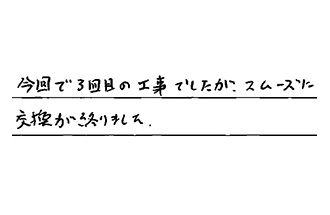 今回で3回目の工事でしたが、スムーズに
交換が終りました.